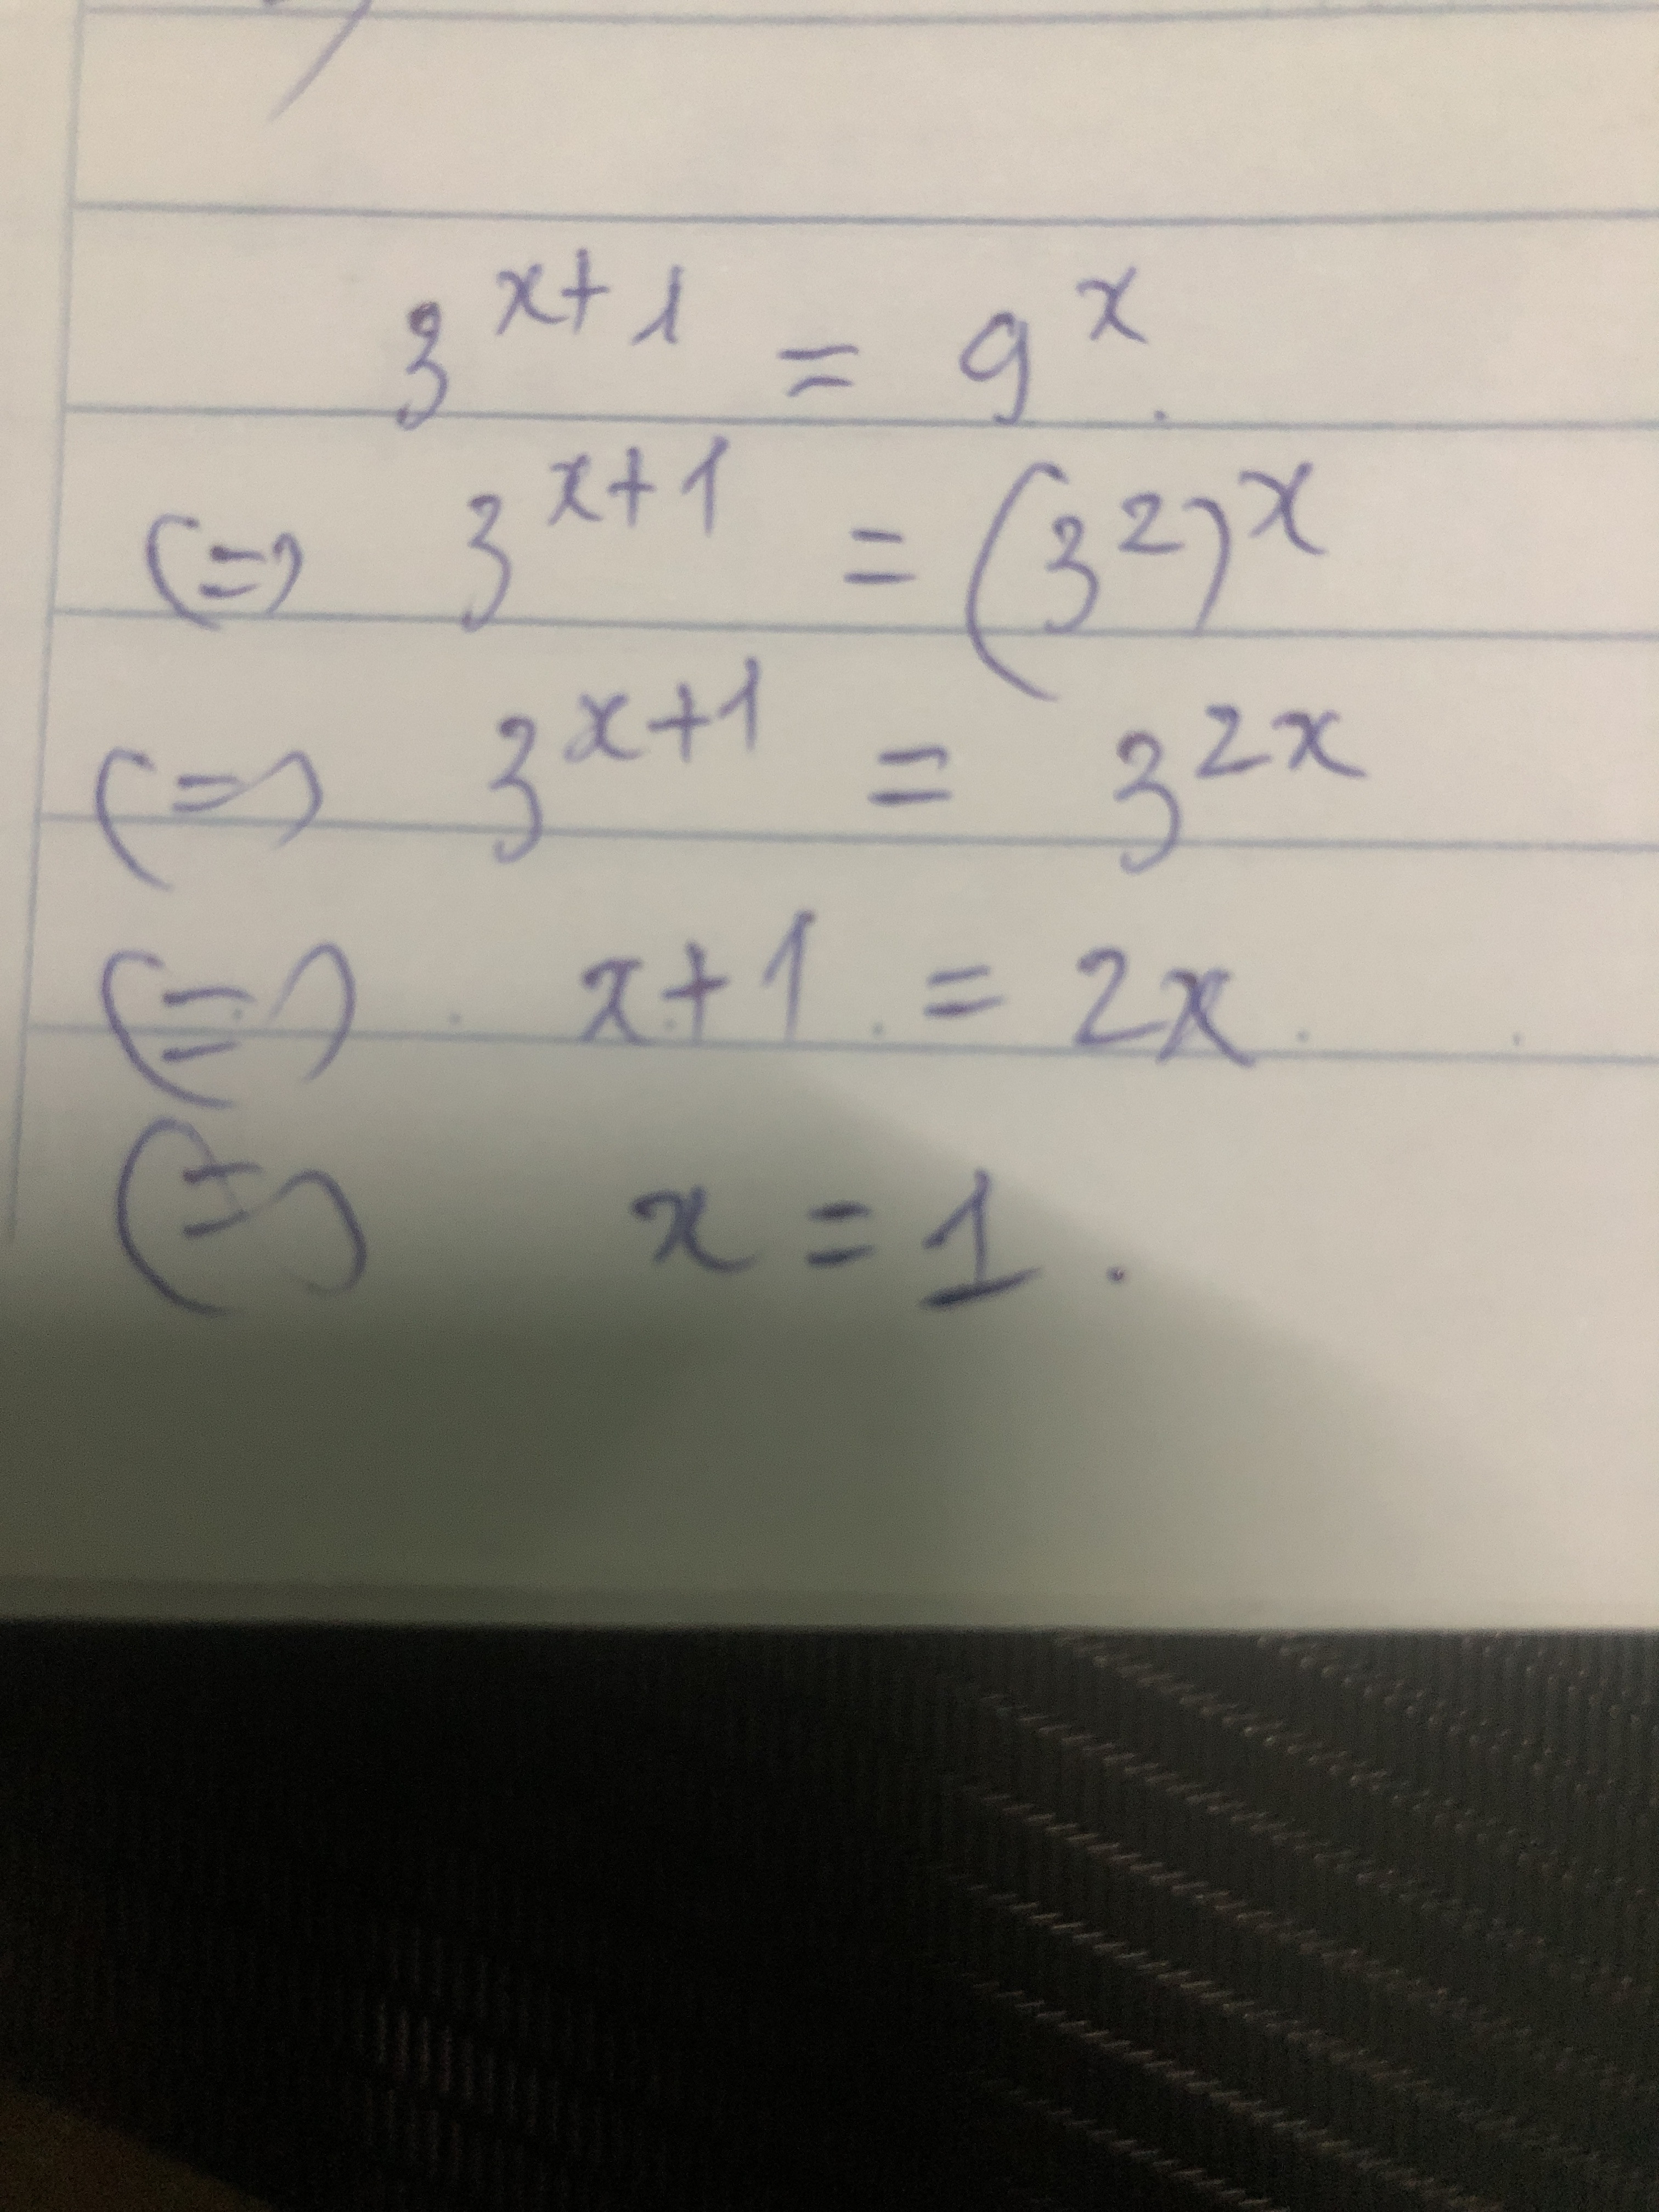 3^{x+1} = 9^x.
(=) 3^{x+1} = (3^2)^x
(=) 3^{x+1} = 3^{2x}
(=) x+1 = 2x
(=) x = 1.